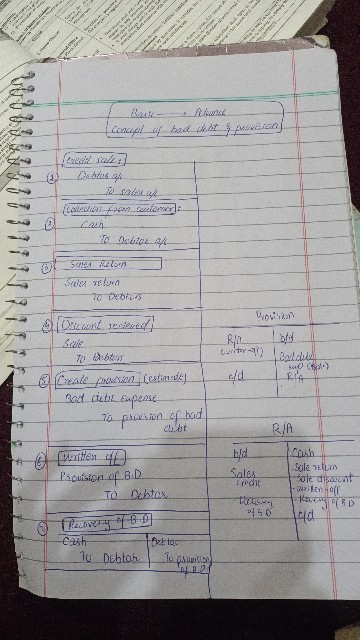 Basic → Advance
Concept of bad debt & provision
Credit sales:
① Debtor a/c
To Sales a/c
Collection from customer:
② Cash
To Debtor a/c
③ Sales Return
Sales return
To Debtors
④ Discount recieved:
Sale
To Debtors
⑤ Create provision (estimate)
Bad debt Expense
To provision of bad
debt
⑥ Written off
Provision of B.D
To Debtor
⑦ Recovery of B.D
Cash
To Debtor
Debtor
To provision
of B.D
Provision
R/A
(written-off)
c/d
b/d
Bad debt
R/A
R/A
b/d
Sales
credit
Recovery
of B.D
Cash
Sale return
Sale discount
written-off
Recovery of B.D
c/d